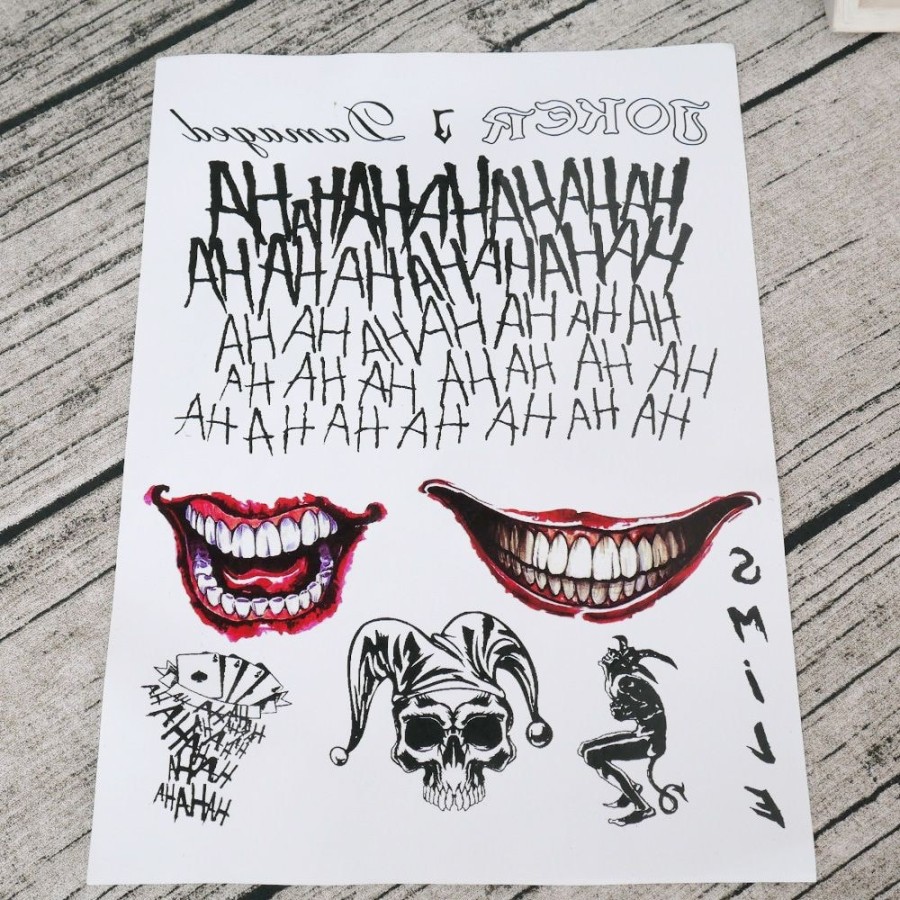 JOKER J Damaged
HA HA HA HA HA HA HA
HA HA HA HA HA HA HA
HA HA HA HA HA HA HA
HA HA HA HA HA HA HA
HA HA HA HA HA HA HA
SMiLE
HAHAHA